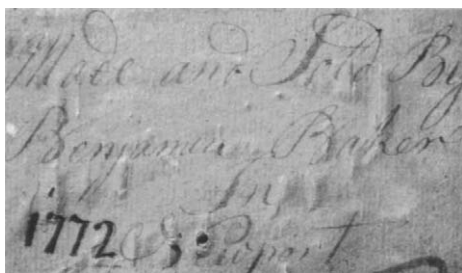 Made and Sold By
Benjamin Baker
In
1772 Newport